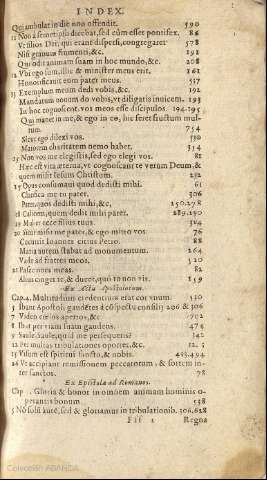 INDEX.
Qui ambulat in die non offendit. 590
12 Non à semetipso dicebat, sed cùm esset pontifex. 86
Vt filios Dei, qui erant dispersi, congregaret 578
Nisi granum frumenti, &c. 191
Qui odit animam suam in hoc mundo, &c. 208
12 Vbi ego sum, illic & minister meus erit. 161
Honorificabit eum pater meus. 517
13 Exemplum meum dedi vobis, &c. 192
Mandatum nouum do vobis, vt diligatis inuicem. 193
In hoc cognoscent. vos meos esse discipulos. 194.195
Qui manet in me, & ego in eo, hic feret fructum mul-
tum. 754
Sicut ego dilexi vos. 530
Maiorem charitatem nemo habet. 314
15 Non vos me elegistis, sed ego elegi vos. 81
Hæc est vita æterna, vt cognoscant te verum Deum, &
quem misisti Iesum Christum. 232
17 Opus consumaui quod dedisti mihi. 61
Clarifica me tu pater. 306
Pater, quos dedisti mihi, &c. 250.278
18 Calicem, quem dedit mihi pater. 289.290
19 Mulier ecce filius tuus. 504
20 Sicut misit me pater, & ego mitto vos. 76
Cucurrit Ioannes citius Petro. 88
Maria autem stabat ad monumentum. 264
Vade ad fratres meos. 520
21 Pasce oues meas. 82
Alius cinget te, & ducet, quò tu non vis. 159
Ex Actis Apostolorum.
Cap.4. Multitudinis credentium erat cor vnum. 530
5 Ibant Apostoli gaudētes à cōspectu consilij 206 & 506
7 Video cælos apertos, &c. 792
8 Ibat per viam suam gaudens. 474
9 Saule, Saule, quid me persequeris? 342
13 Per multas tribulationes oportet, &c.
15 Visum est spiritui sancto, & nobis. 493.494
26 Vt accipiant remissionem peccatorum, & sortem in-
ter sanctos. 78
Ex Epistola ad Romanos.
Cap Gloria & honor in omnem animam hominis o-
perantis bonum. 558
5 Nō solū autē, sed & gloriamur in tribulationib. 506.628
Fff 1 Regna
Colección ABANDA